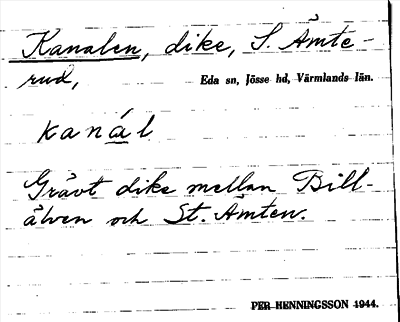 Kanalen, dike, S. Åmte-
rud,
Eda sn, Jösse hd, Värmlands län.
kanál
Grävt dike mellan Bill-
älven och St. Ämten.
PER HENNINGSSON 1944.